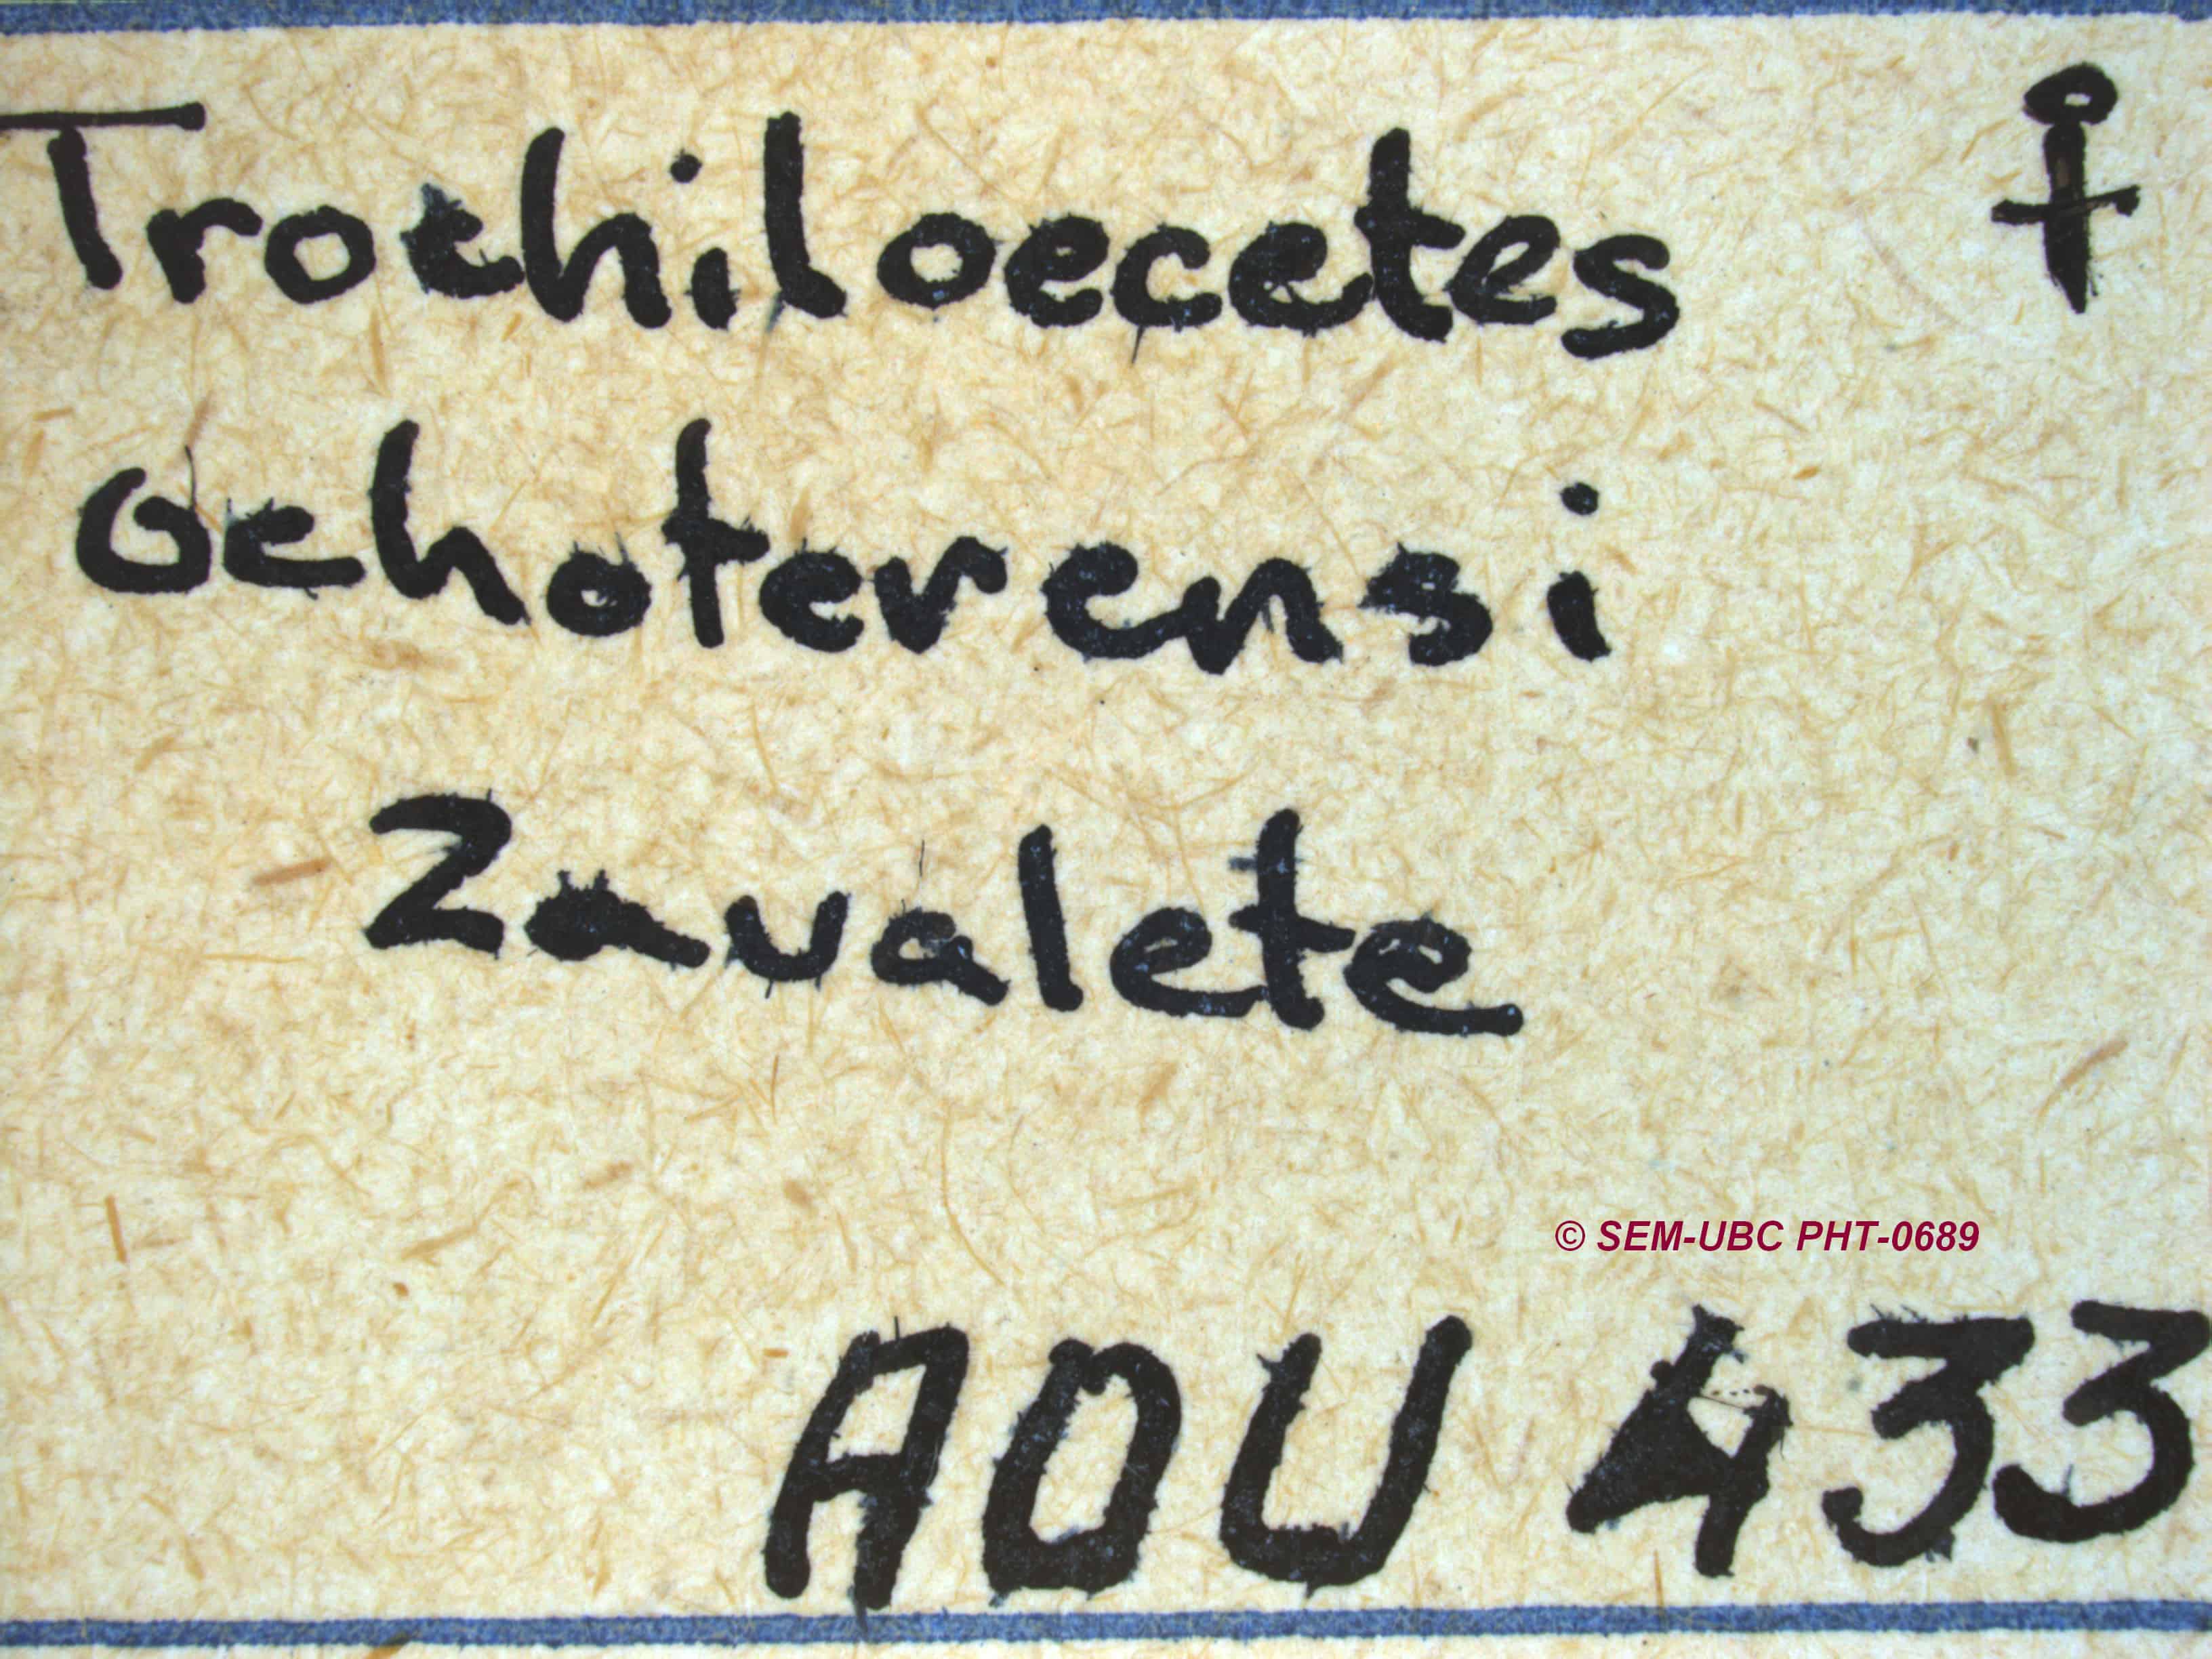 Trochiloecetes ♀
ochoterensi
Zavalete
© SEM-UBC PHT-0689
AOU 433